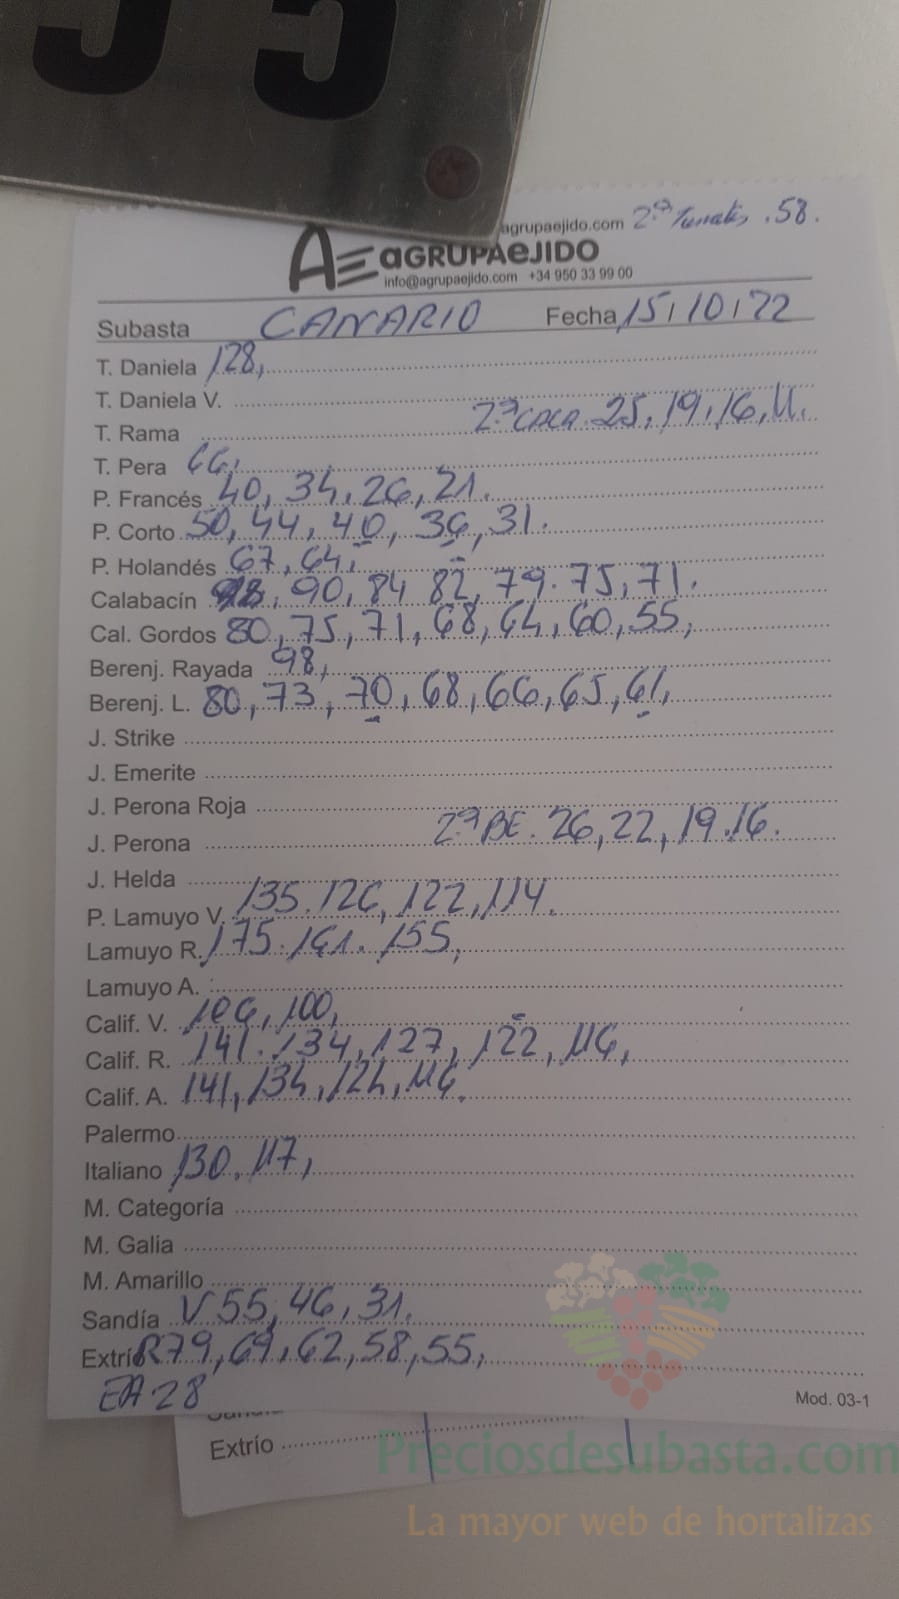 55
agrupaejido.com 2ª Tomates .58.
AGRUPAEJIDO
info@agrupaejido.com +34 950 33 99 00
Subasta CANARIO Fecha 15/10/22
T. Daniela 128,
T. Daniela V.
2ª CACA. 25, 19, 16, 11.
T. Rama
T. Pera 66,
P. Francés 40, 34, 26, 21.
P. Corto 50, 44, 40, 36, 31.
P. Holandés 67, 64,
Calabacín 98, 90, 84 82, 79. 75, 71.
Cal. Gordos 80, 75, 71, 68, 64, 60, 55,
Berenj. Rayada 98,
Berenj. L. 80, 73, 70, 68, 66, 65, 61,
J. Strike
J. Emerite
J. Perona Roja
2ª BE. 26, 22, 19. 16.
J. Perona
J. Helda
P. Lamuyo V. 135. 126, 122, 114.
Lamuyo R. 175. 161. 155,
Lamuyo A.
Calif. V. 106, 100,
Calif. R. 141. 134, 127, 122, 116,
Calif. A. 141, 134, 124, 116.
Palermo
Italiano 130. 117,
M. Categoría
M. Galia
M. Amarillo
Sandía V 55, 46, 31.
Extrí R 79, 69, 62, 58, 55,
EA 28
Mod. 03-1
Extrío
Preciosdesubasta.com
La mayor web de hortalizas